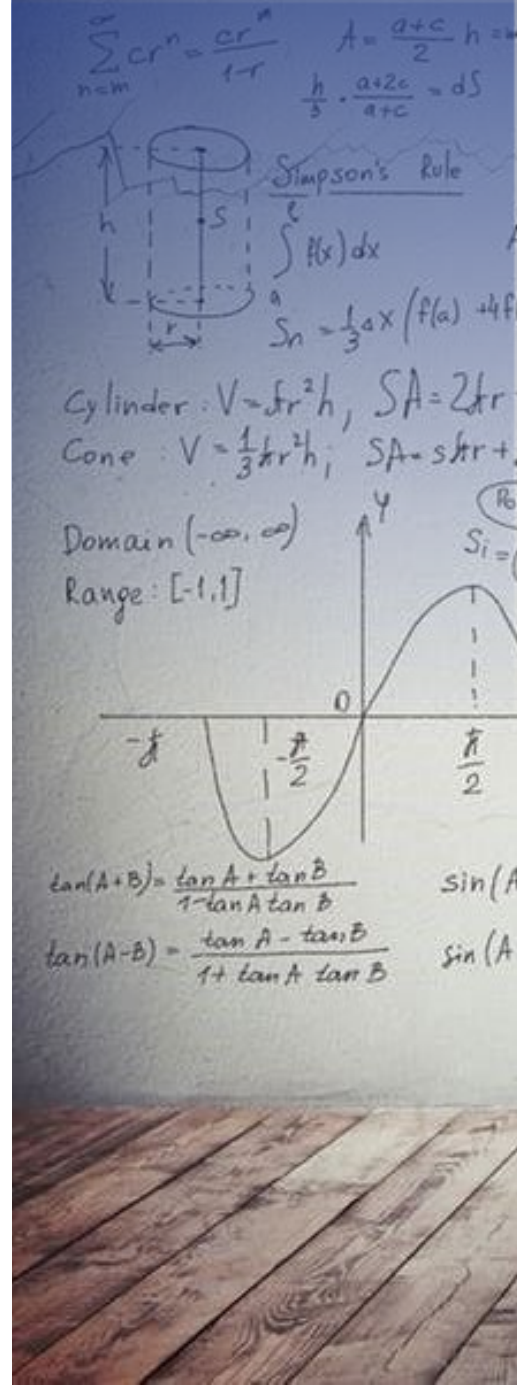 ∞
∑ cr^n = cr^n / 1-r
n=m
A = a+c / 2 h =
h/3 · a+2c / a+c = dS
h
S
r
a
Simpson's Rule
∫ f(x) dx
Sn = 1/3 Δx (f(a) + 4f
Cylinder : V = πr²h, SA = 2πr
Cone : V = 1/3 πr²h; SA = sπr +
Domain (-∞, ∞)
Range : [-1,1]
y
Si = (
0
-π
-π/2
π/2
tan(A+B) = tan A + tan B / 1 - tan A tan B
sin(A
tan(A-B) = tan A - tan B / 1 + tan A tan B
sin(A